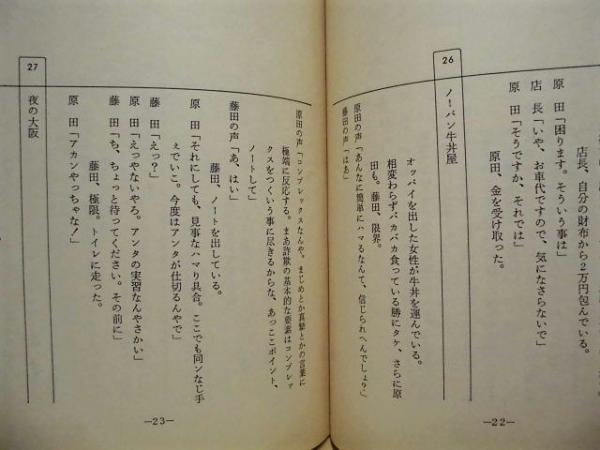 店長、自分の財布から２万円包んでいる。
原　田「困ります。そういう事は」
店　長「いや、お車代ですので、気になさらないで」
原　田「そうですか、それでは」
原田、金を受け取った。
26
ノーパン牛丼屋
オッパイを出した女性が牛丼を運んでいる。
相変わらずバカバカ食っている勝にタケ、さらに原
田も。藤田、限界。
原田の声「あんなに簡単にハマるなんて、信じられへんでしょ？」
藤田の声「はあ」
—22—
原田の声「コンプレックスなんや。まじめとか真摯とかの言葉に
極端に反応する。まあ詐欺の基本的な要素はコンプレッ
クスをつくいう事に尽きるからな、あっここポイント、
ノートして」
藤田の声「あ、はい」
藤田、ノートを出している。
原　田「それにしても、見事なハマり具合。ここでも同ンなじ手
ぇでいこ。今度はアンタが仕切るんやで」
藤　田「えっ？」
原　田「えっやないやろ。アンタの実習なんやさかい」
藤　田「ち、ちょっと待ってください。その前に」
藤田、極限。トイレに走った。
原　田「アカンやっちゃな！」
27
夜の大阪
—23—